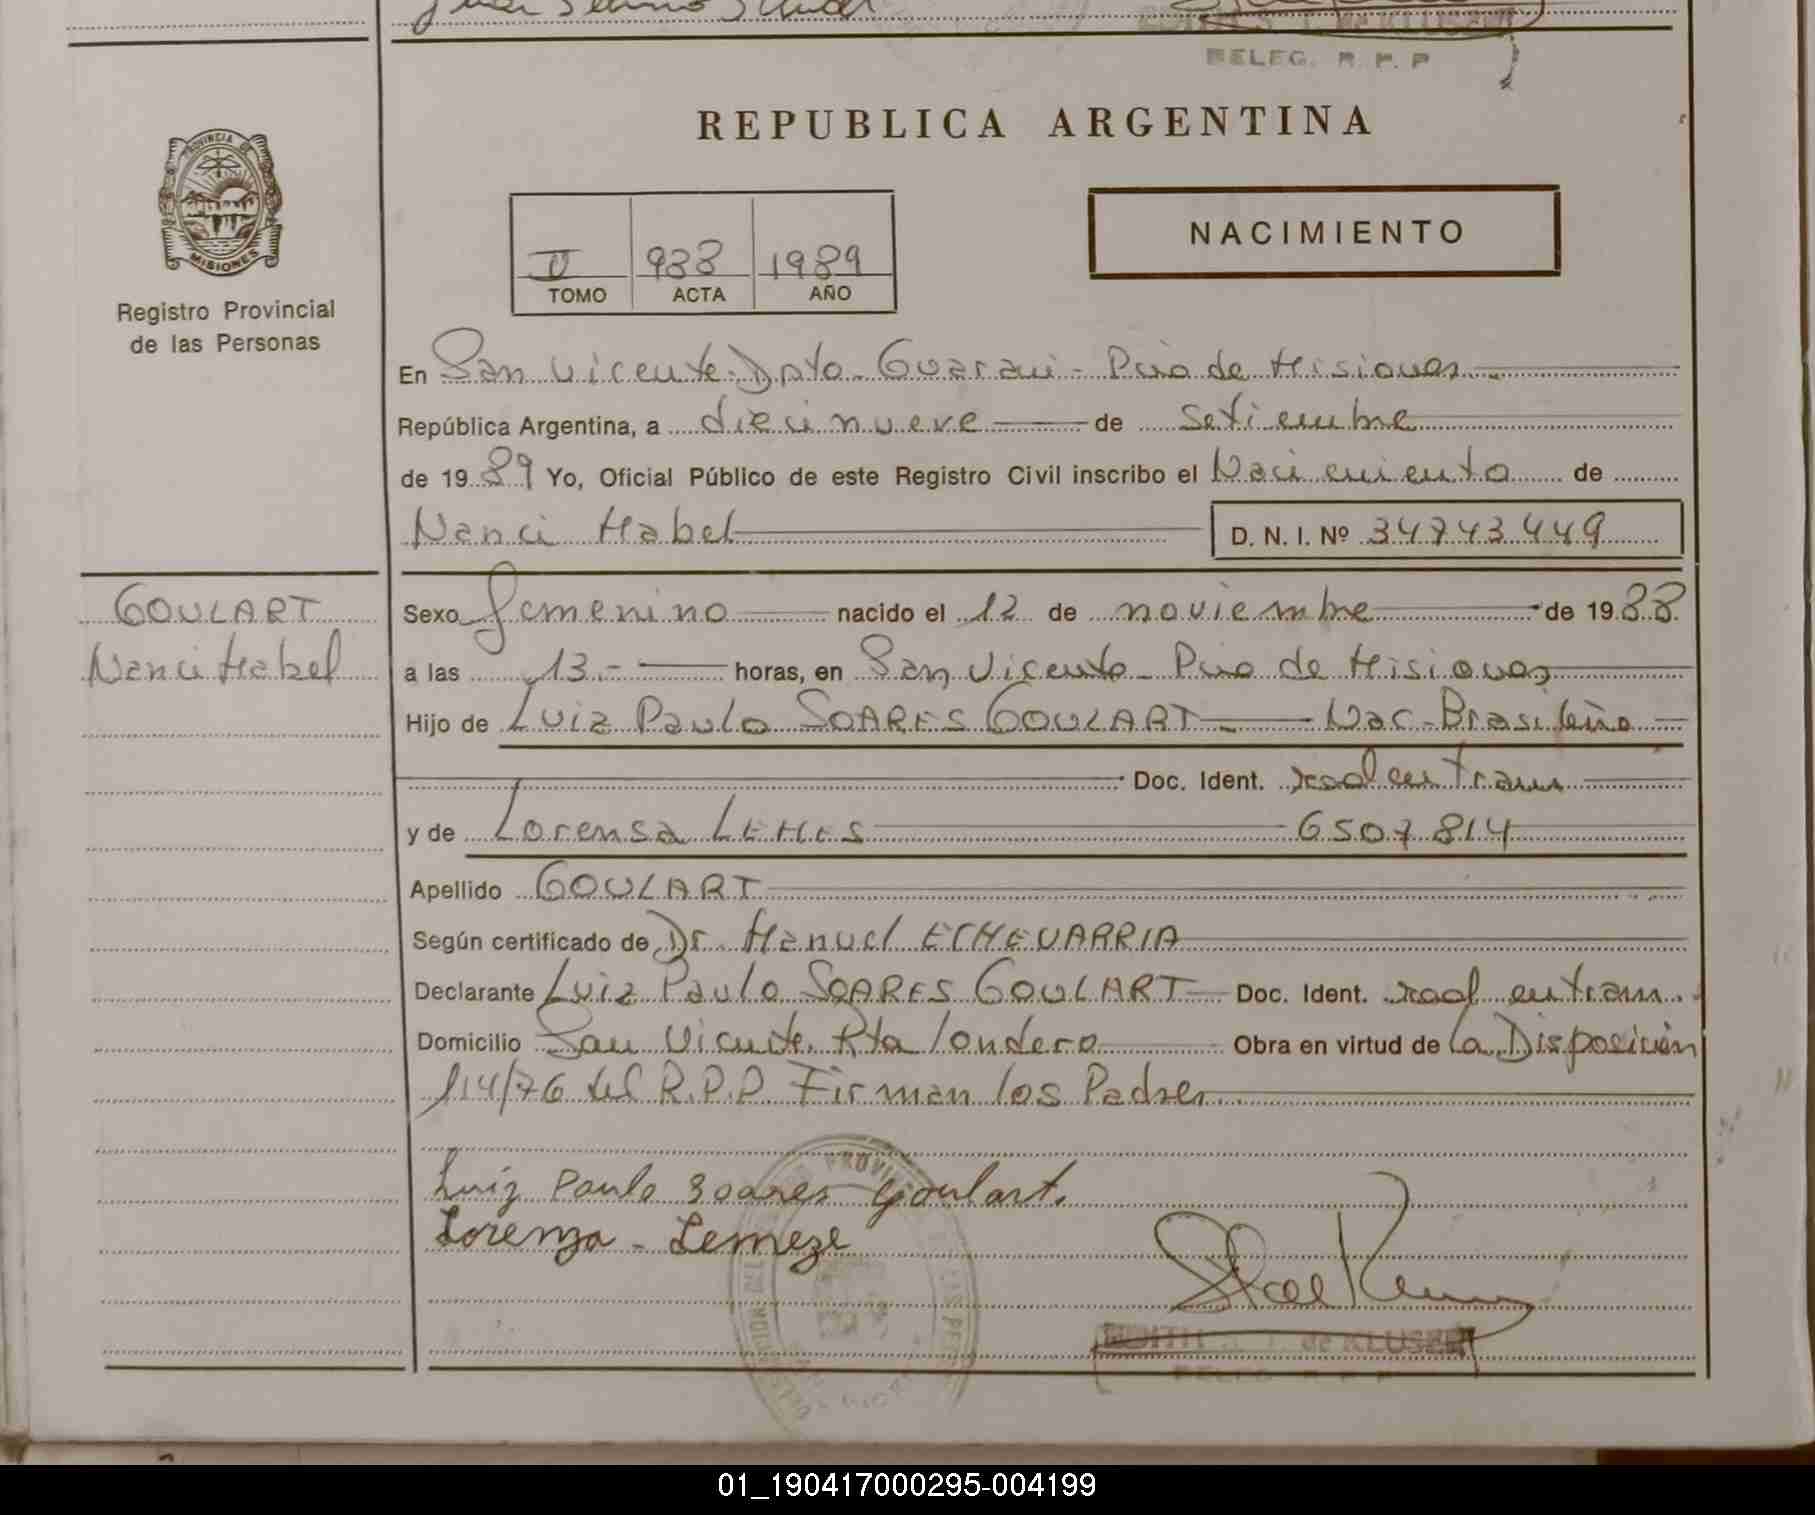 BELEG. R. P. P
REPUBLICA ARGENTINA
PROVINCIA DE
MISIONES
Registro Provincial
de las Personas
II 938 1989
TOMO ACTA AÑO
NACIMIENTO
En San Vicente. Dpto. Guarani - Pcia de Misiones
República Argentina, a diecinueve de Setiembre
de 1989 Yo, Oficial Público de este Registro Civil inscribo el Nacimiento de
Nanci Mabel D. N. I. Nº 34743449
GOULART
Nanci Mabel
Sexo femenino nacido el 12 de noviembre de 1988
a las 13.- horas, en San Vicente - Pcia de Misiones
Hijo de Luiz Paulo SOARES GOULART - Nac. Brasileño
Doc. Ident. rad en tram
y de Lorensa LEMES 6507814
Apellido GOULART
Según certificado de Dr. Manuel ECHEVARRIA
Declarante Luiz Paulo SOARES GOULART Doc. Ident. rad en tram.
Domicilio San Vicente. Rta londero Obra en virtud de la Disposición
114/76 del R.P.P. Firman los Padres
Luiz Paulo Soares Goulart.
Lorenza - Lemeze
EDITH de KLUSER
BELEG. R. P. P
01_190417000295-004199